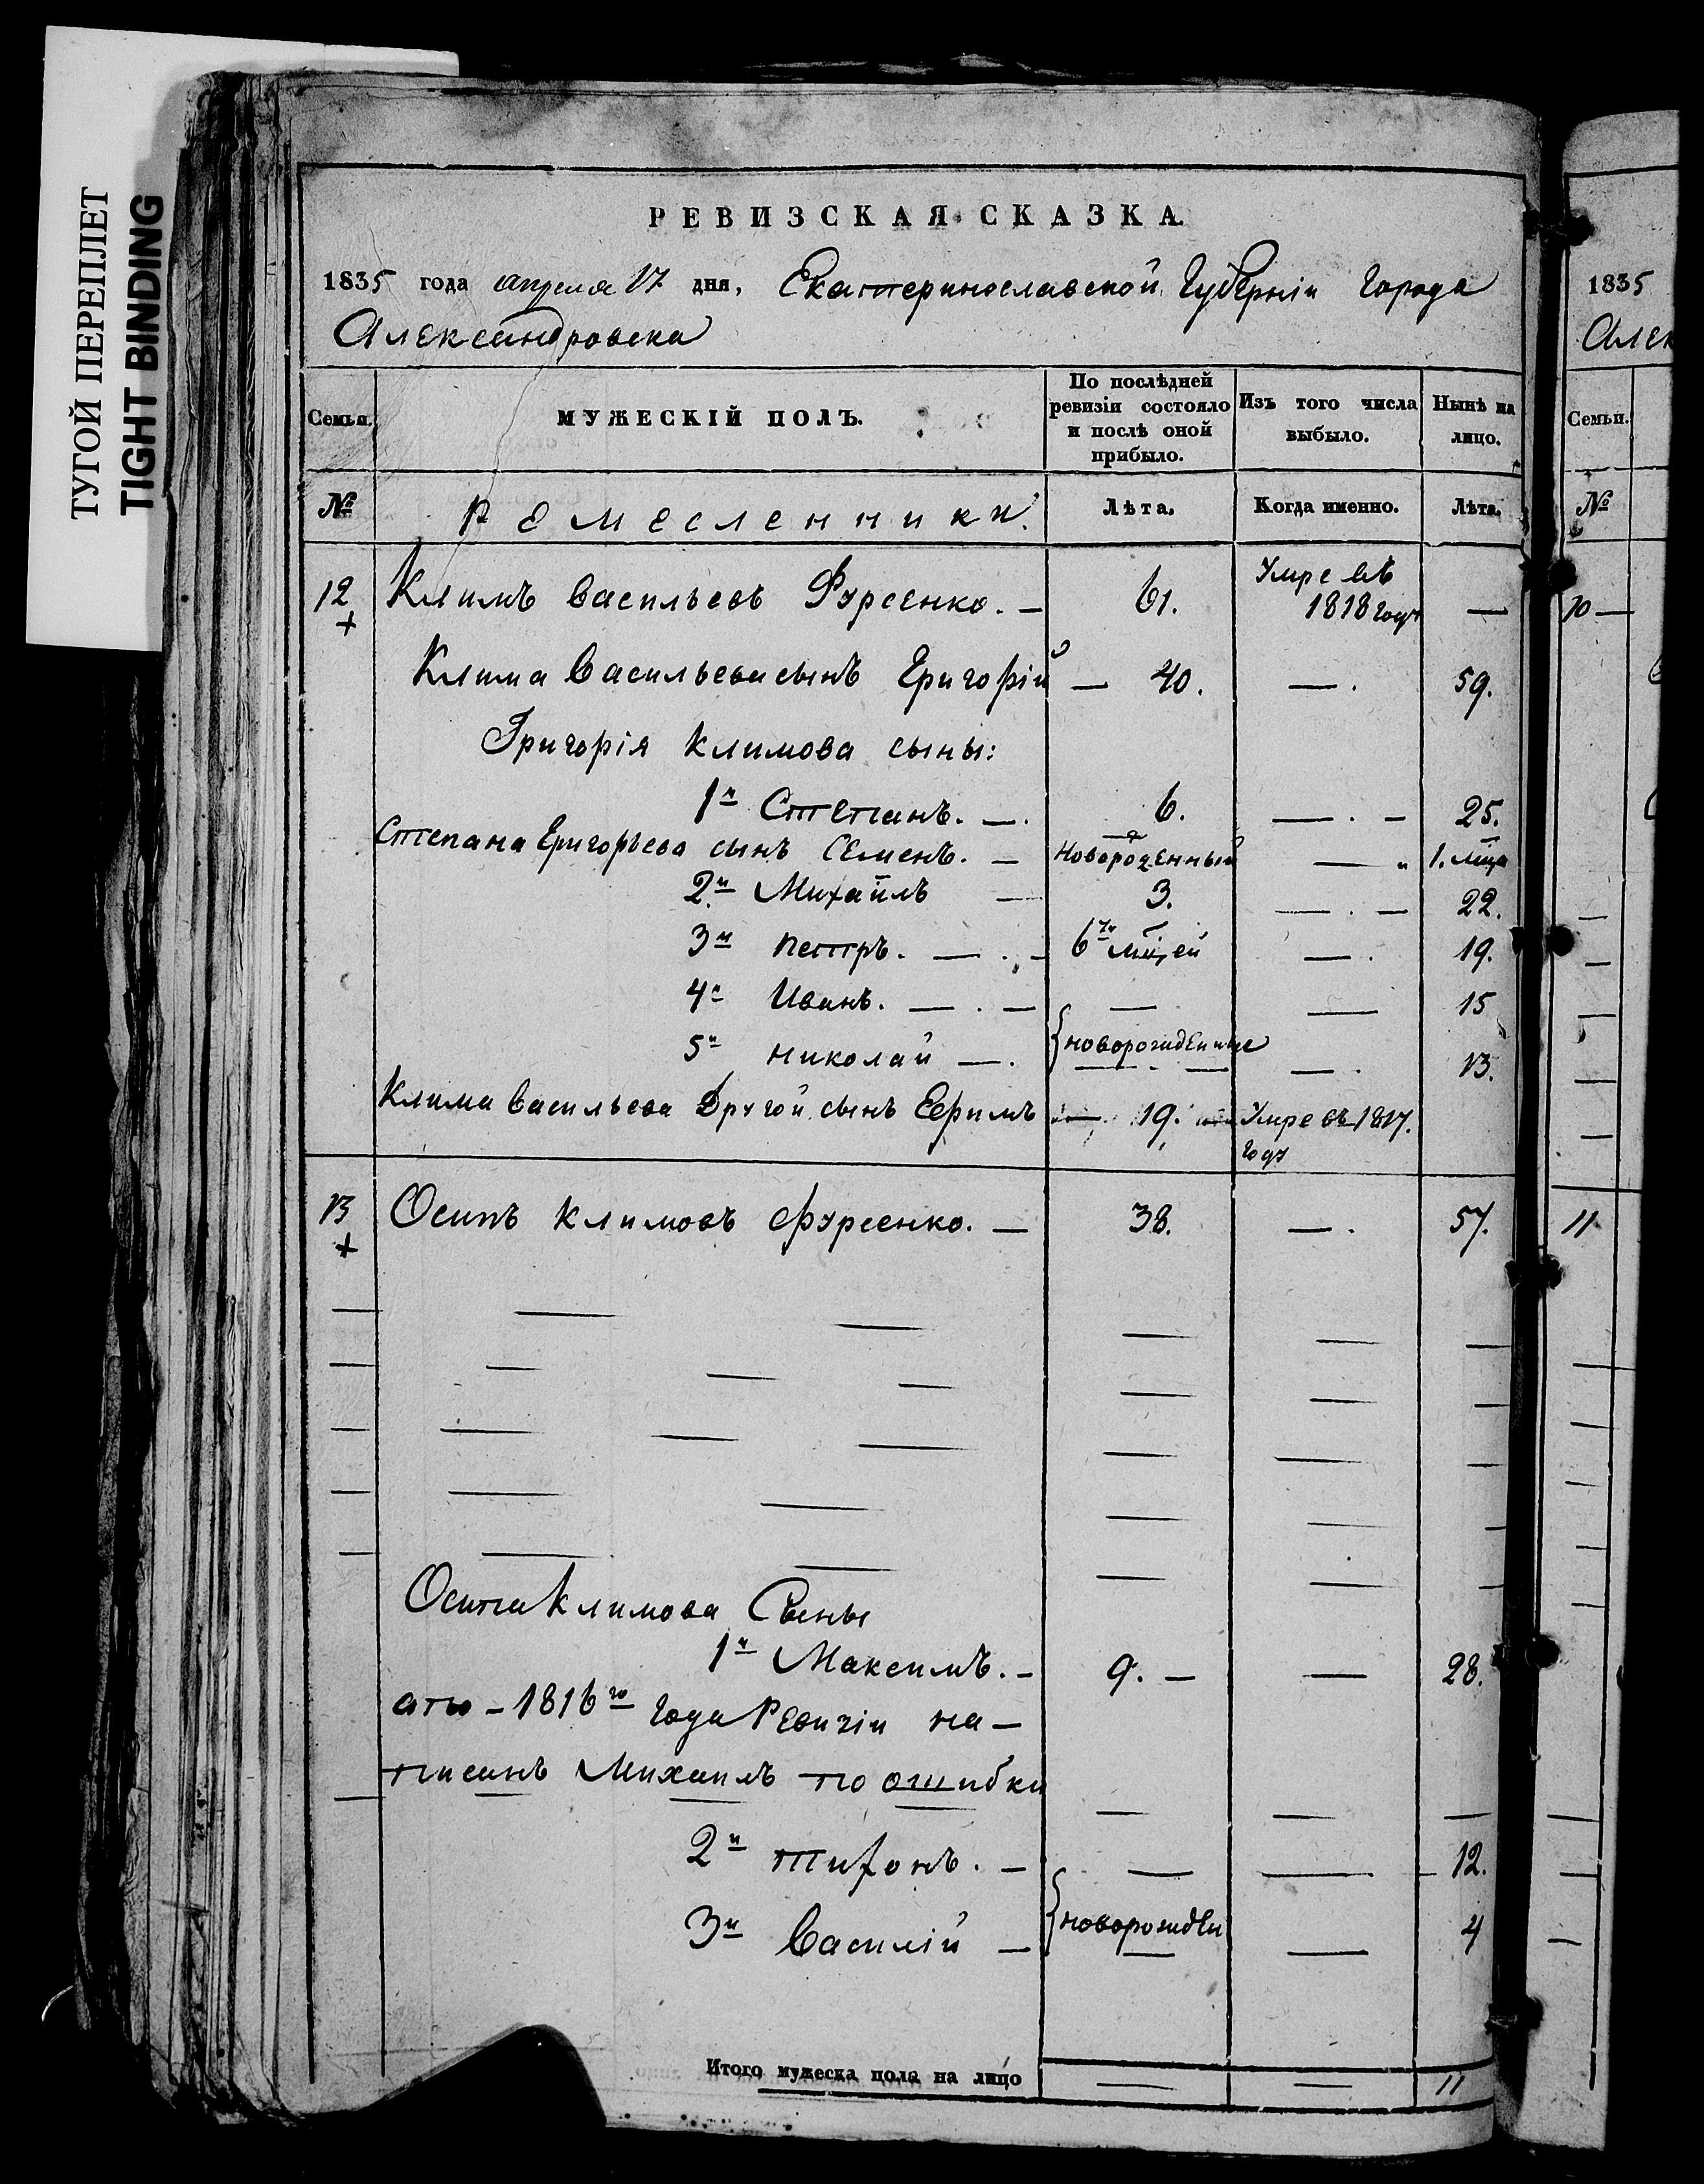 ТУГОЙ ПЕРЕПЛЕТ
TIGHT BINDING
РЕВИЗСКАЯ СКАЗКА.
1835 года апреля 17 дня, Екатеринославской Губерніи Города
Александровска
Семьи.
МУЖЕСКІЙ ПОЛЪ.
По послѣдней ревизіи состояло и послѣ оной прибыло.
Изъ того числа выбыло.
Нынѣ на лицо.
№
Ремесленники.
Лѣта.
Когда именно.
Лѣта.
12 Климъ Васильевъ Фурсенко. — 61. Умре въ 1818 году —
Клима Васильева сынъ Григорій — 40. — . 59.
Григорія Климова сыны:
1й Степанъ. — . 6. — . — 25.
Степана Григорьева сынъ Семенъ. — Новорожденный — 1. мца
2й Михаилъ — 3. — . — 22.
3й Петръ. — . — 6ти мцей — . 19.
4й Иванъ. — . — — — 15
5й Николай — . новорожденные — . 13.
Клима Васильева Другой сынъ Ефимъ — 19. Умре въ 1817. году
13 Осипъ Климовъ Фурсенко. — 38. — . 57.
Осипа Климова Сыны
1й Максимъ. — 9. — — 28.
а по – 1816го Года Ревизіи на–
писанъ Михаилъ по ошибки
2й Тихонъ. — — — 12.
3й Василій — новорожден — 4
Итого мужеска пола на лицо — — 11
1835
Алек
Семьи.
№
10 —
11